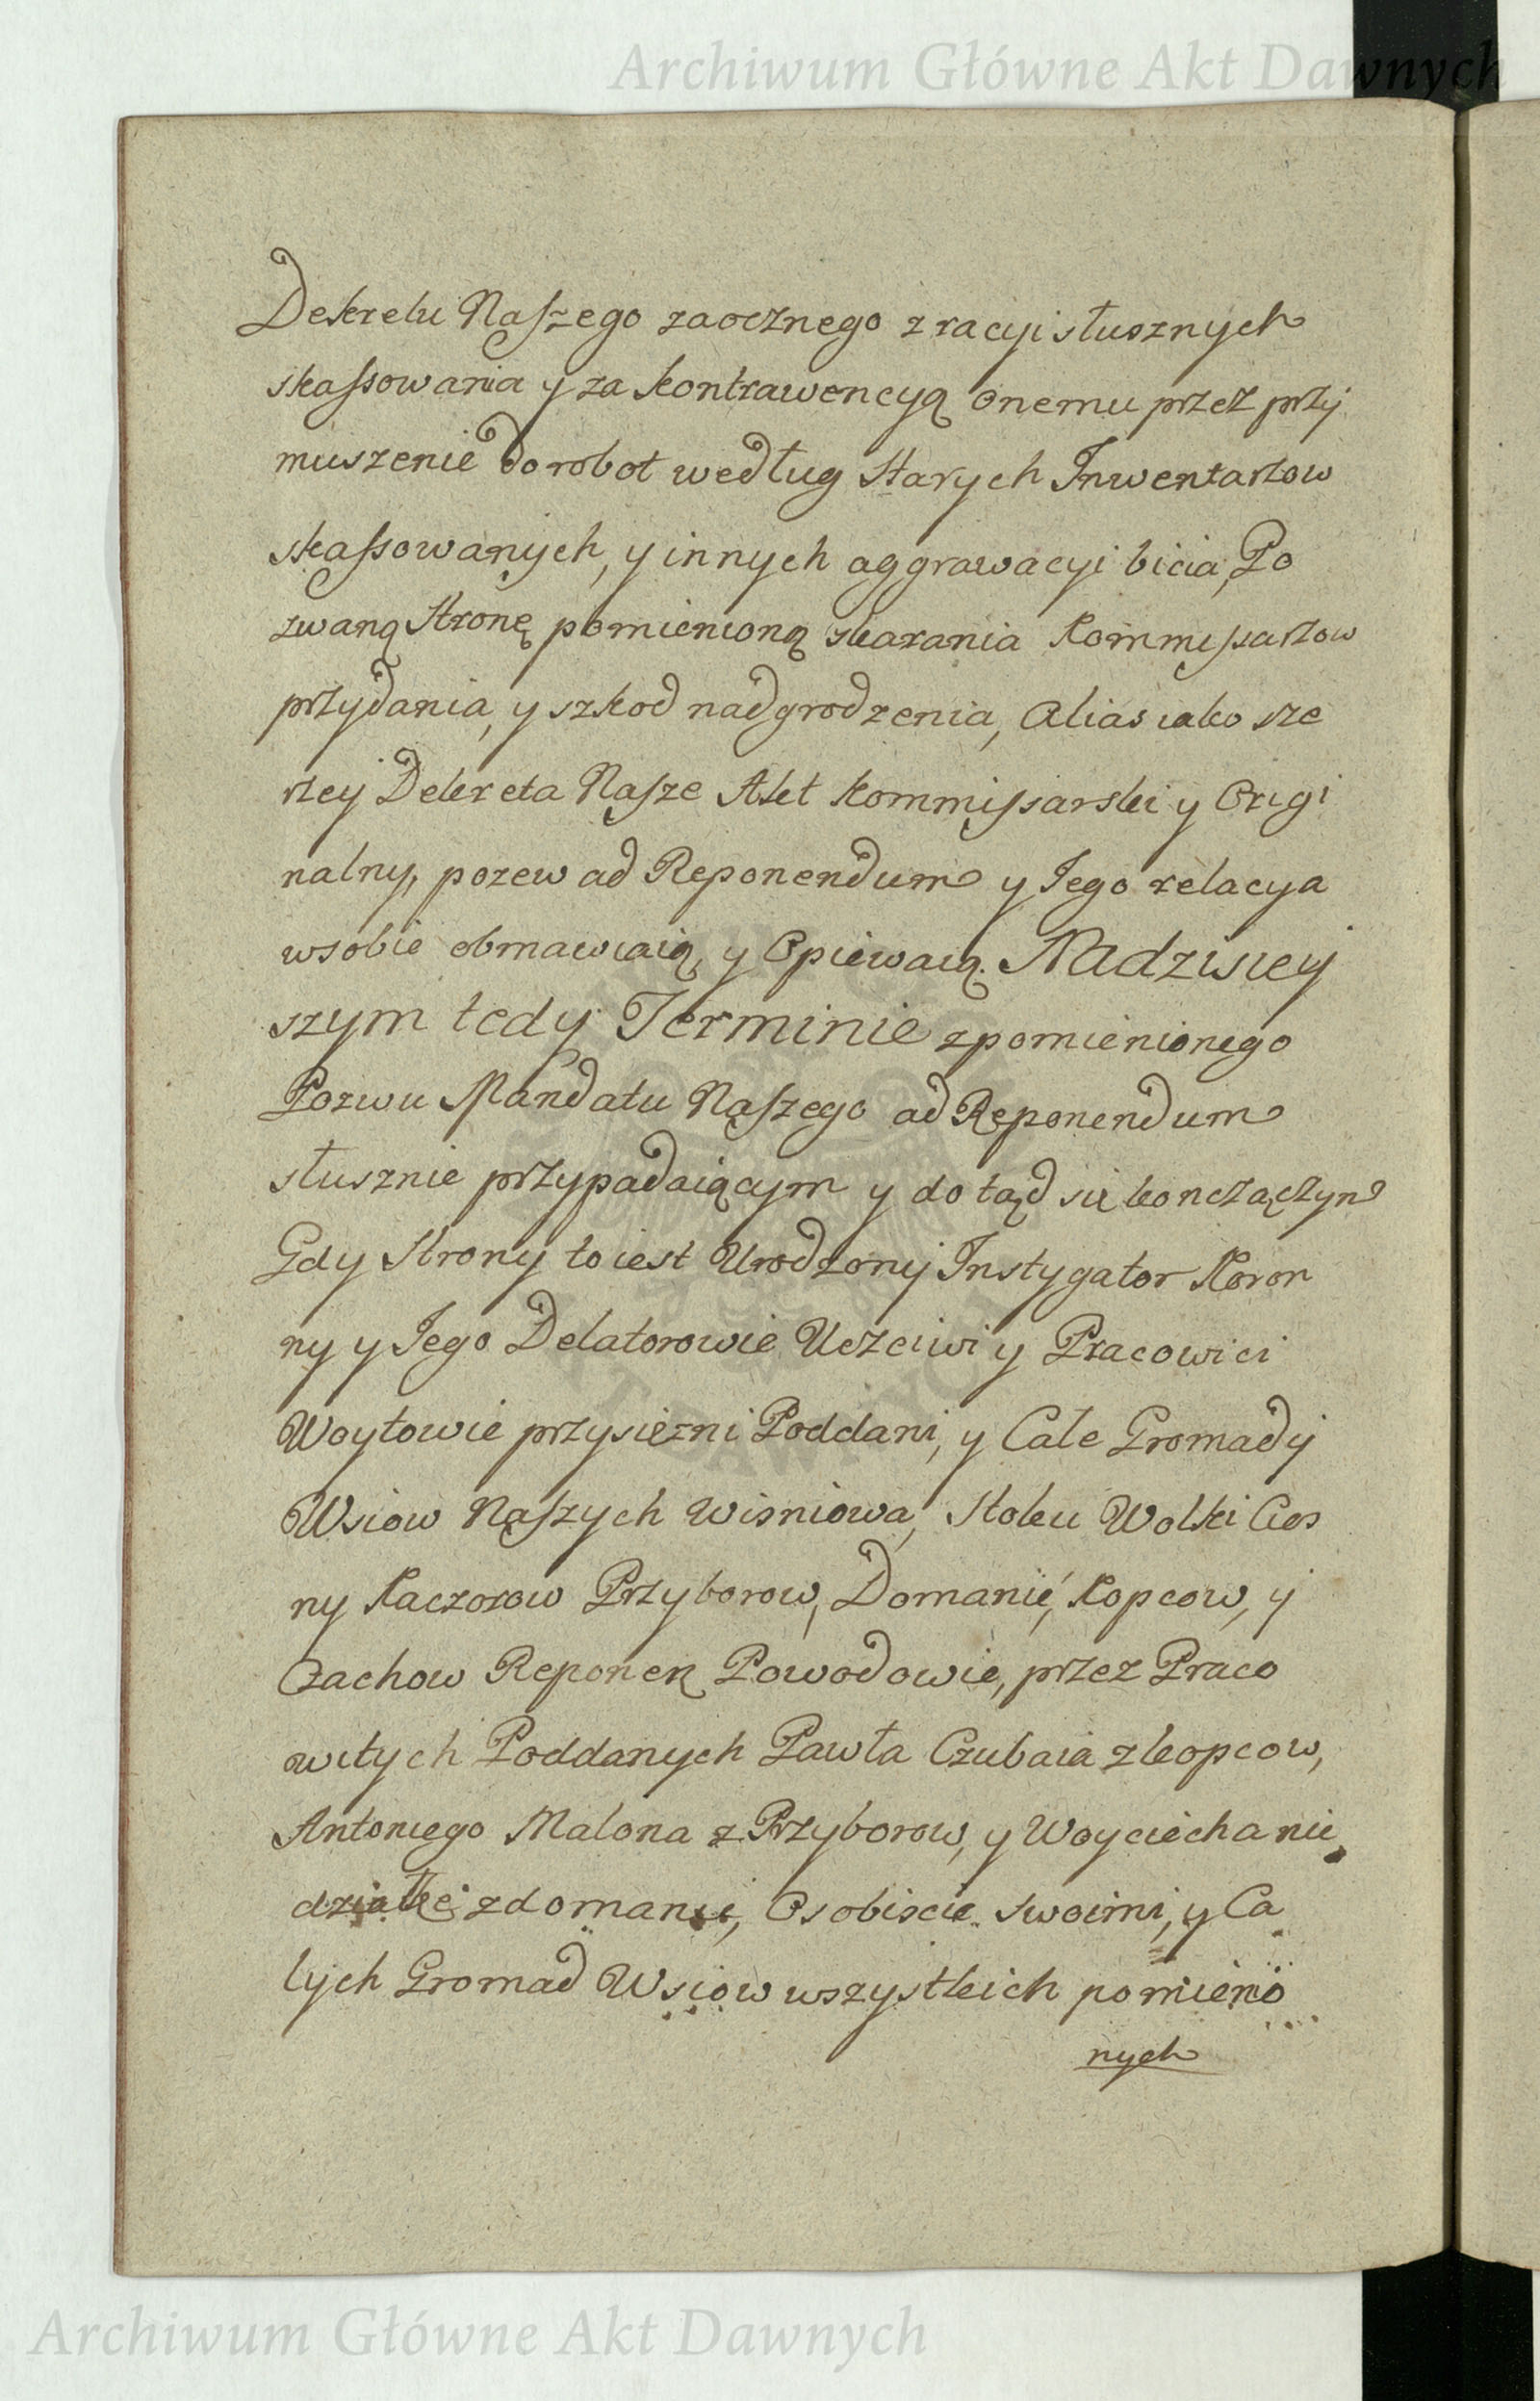 Archiwum Główne Akt Dawnych
Dekretu Naszego zaocznego z racyi słusznych
skassowania y za kontrawencyą onemu przez przy
muszenie do robot według starych Inwentarzow
skassowanych, y innych aggrawacyi bicia, Po
zwaną stronę pomienioną skarania Kommissarzow
przydania, y szkod nadgrodzenia, Alias iako sze
rzey Dekreta Nasze Akt Kommissarski y Origi
nalny, pozew ad Reponendum y Iego relacya
w sobie obmawiaią, y Opiewaią. Na dzisiey
szym tedy Terminie z pomienionego
Pozwu Mandatu Naszego ad Reponendum
słusznie przypadaiącym y do tąd się konczączym
Gdy Strony to iest Urodzony Instygator Koron
ny y Iego Delatorowie Uczciwi y Pracowici
Woytowie przysiężni Poddani, y Cale Gromady
Wsiow Naszych Wisniowa, Stoku Wolki Cios
ny Kaczorow Przyborow, Domanie, Kopcow, y
Czachow Reponen Powodowie, przez Praco
witych Poddanych Pawła Czubaia z kopcow,
Antoniego Malona z Przyborow, y Woyciecha nie
działkę z domanie, Osobiscie swoimi, y Ca
lych Gromad Wsiow wszystkich pomienio
nych
Archiwum Główne Akt Dawnych